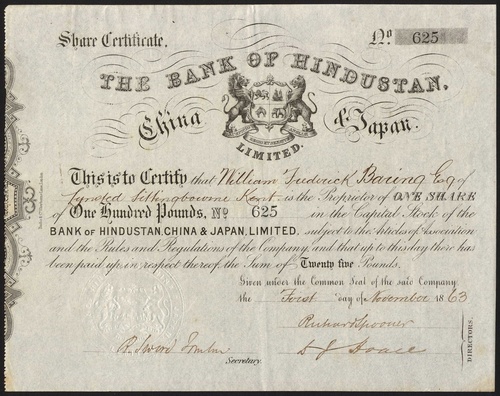 Share Certificate.
No 625
THE BANK OF HINDUSTAN,
China & Japan.
LIMITED.
This is to Certify that William Frederick Baring Esq of
Lynsted Sittingbourne Kent is the Proprietor of ONE SHARE
of One Hundred Pounds, No 625 in the Capital Stock of the
BANK OF HINDUSTAN, CHINA & JAPAN, LIMITED, subject to the Articles of Association
and the Rules and Regulations of the Company, and that up to this day there has
been paid up, in respect thereof, the Sum of Twenty five Pounds.
Given under the Common Seal of the said Company
the First day of November 1863
Richard Spooner
DIRECTORS.
Secretary.